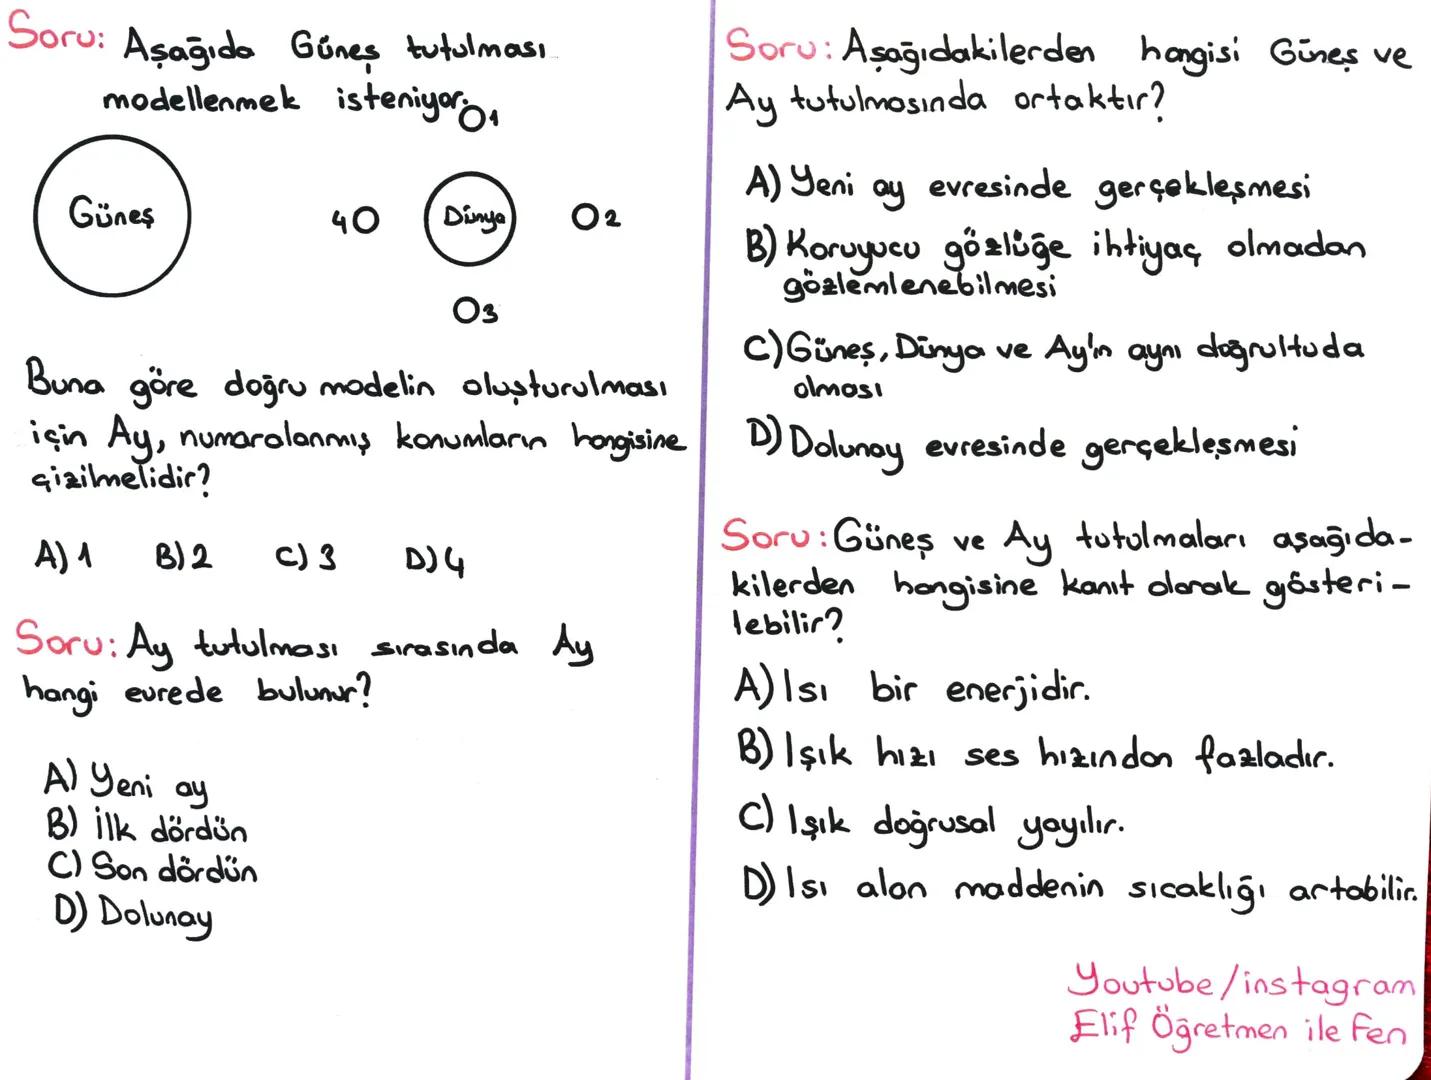 Soru: Aşağıda Güneş tutulması
modellenmek isteniyor.
1
Güneş
4
Dünya
2
3
Buna göre doğru modelin oluşturulması
için Ay, numaralanmış konumların hangisine
çizilmelidir?
A) 1 B) 2 C) 3 D) 4
Soru: Ay tutulması sırasında Ay
hangi evrede bulunur?
A) Yeni ay
B) İlk dördün
C) Son dördün
D) Dolunay
Soru: Aşağıdakilerden hangisi Güneş ve
Ay tutulmasında ortaktır?
A) Yeni ay evresinde gerçekleşmesi
B) Koruyucu gözlüğe ihtiyaç olmadan
gözlemlenebilmesi
C) Güneş, Dünya ve Ay'ın aynı doğrultuda
olması
D) Dolunay evresinde gerçekleşmesi
Soru: Güneş ve Ay tutulmaları aşağıda-
kilerden hangisine kanıt olarak gösteri-
lebilir?
A) Isı bir enerjidir.
B) Işık hızı ses hızından fazladır.
C) Işık doğrusal yayılır.
D) Isı alan maddenin sıcaklığı artabilir.
Youtube/instagram
Elif Öğretmen ile Fen